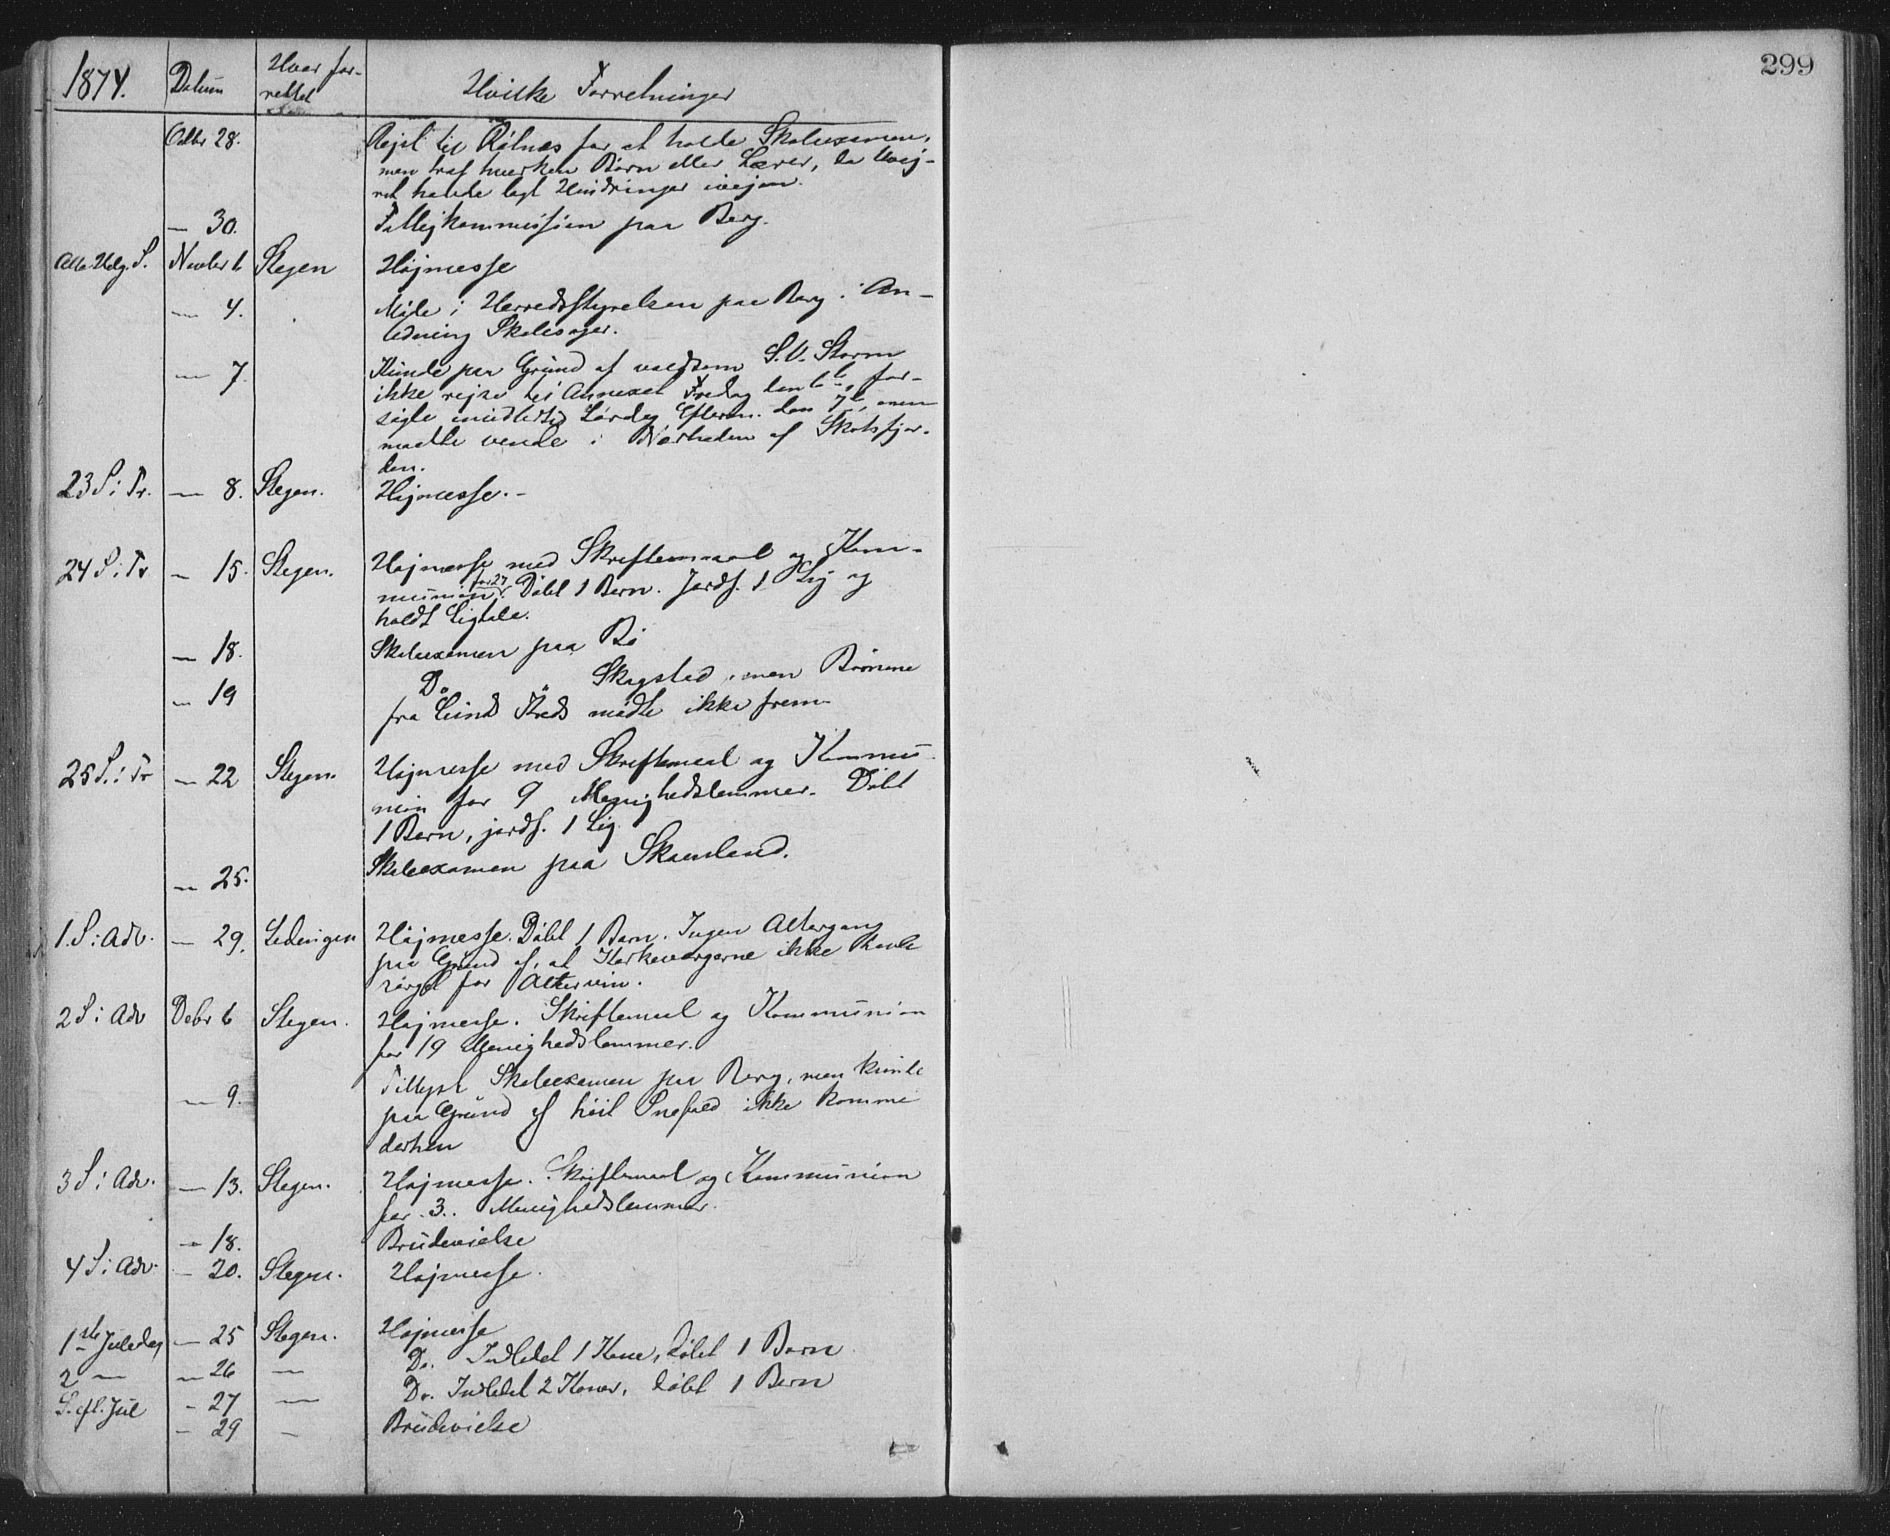 299
1874. Datum Hvor for-
rettet Hvilke Forretninger
Octbr 28. Rejst til Rølnæs for at holde Skoleexamen,
men traf hverken Børn eller Lærer, da Uvej-
ret havde lagt Hindringer ivejen.
— 30. Fattigkommission paa Berg.
Alle Helg. S. Novbr 1 Stegen Højmesse
— 4. Møde i Herredsstyrelsen paa Berg i An-
ledning Skolesager.
— 7. Kunde paa Grund af voldsom S.V. Storm
ikke rejse til Annexet Fredag den 6te, for-
søgte imidlertid Lørdag Efterm. den 7de, men
maatte vende i Nærheden af Skotsfjor-
den.
23 S. i Tr. — 8. Stegen. Højmesse. -
24 S. i Tr — 15. Stegen. Højmesse med Skriftemaal og Kom-
munion for 27. Døbt 1 Barn. Jordf. 1 Lig og
holdt Ligtale.
— 18. Skoleexamen paa Bø
— 19 Do " Skagstad, men Børnene
fra Lunds Kreds mødte ikke frem.
25 S. i Tr — 22 Stegen. Højmesse med Skriftemaal og Kommu-
nion for 9 Menighedslemmer. Døbt
1 Barn, jordf. 1 Lig.
— 25. Skoleexamen paa Skanland.
1. S. i Adv. — 29. Lødingen Højmesse. Døbt 1 Barn. Ingen Altergang
paa Grund af, at Kirkevergerne ikke havde
sørget for Altervin.
2 S. i Adv Debr 6 Stegen. Højmesse. Skriftemaal og Kommunion
for 19 Menighedslemmer.
— 9. Tillyst Skoleexamen paa Berg, men kunde
paa Grund af høit Snefald ikke komme
derhen
3 S. i Adv. — 13. Stegen. Højmesse. Skriftemaal og Kommunion
for 3. Menighedslemmer.
— 18. Brudevielse
4 S. i Adv. — 20. Stegen. Højmesse.
1ste Juledag — 25 Stegen. Højmesse
2 — — 26 — Do. Indledet 1 Kone, døbt 1 Barn
S. eft. Jul — 27 — Do. Indledet 2 Koner, døbt 1 Barn
— 29 — Brudevielse